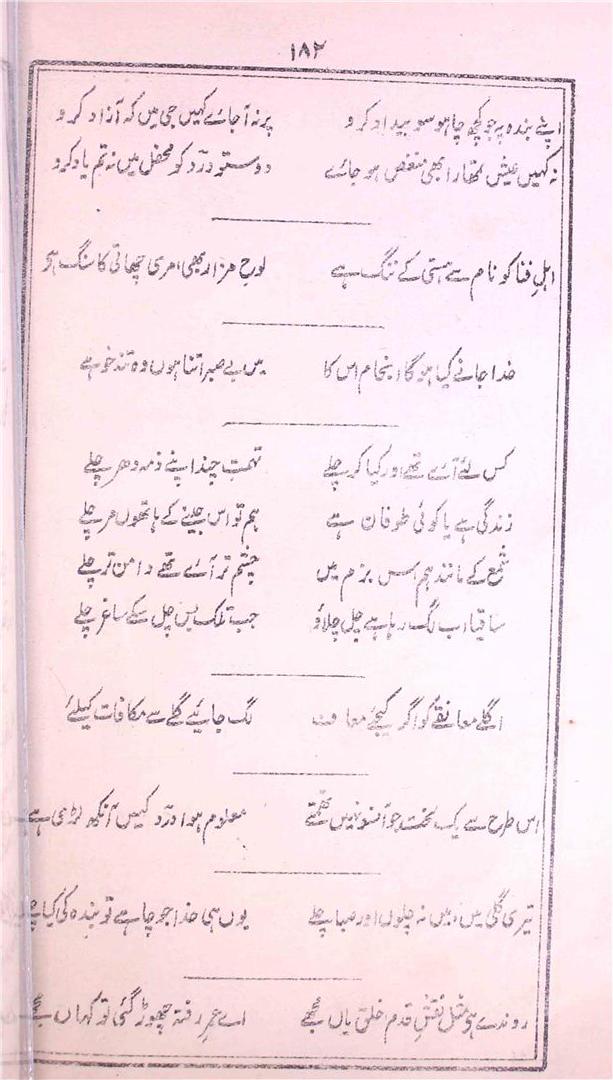 ۱۸۲
اپنے بندہ پہ جو کچھ چاہو سو بیداد کرو پر نہ آجائے کہیں جی میں کہ آزاد کرو
نہ کہیں عیش تمھارا بھی منغض ہو جائے دوستو درد کو محفل میں نہ تم یاد کرو
اہلِ فنا کو نام سے ہستی کے ننگ ہے لوحِ مزار بھی مری چھاتی کا سنگ ہے
خدا جانے کیا ہوگا انجام اس کا میں بے صبر اتنا ہوں وہ تند خو ہے
کس لئے آئے تھے اور کیا کر چلے تہمتِ چند اپنے ذمہ دھر چلے
زندگی ہے یا کوئی طوفان ہے ہم تو اس جینے کے ہاتھوں مر چلے
شمع کے مانند ہم اس بزم میں چشم تر آئے تھے دامن تر چلے
ساقیا اب لگ رہا ہے چل چلاؤ جب تلک بس چل سکے ساغر چلے
اگلے معانقے کو اگر کیجئے معاف لگ جائیے گلے سے مکافات کیلئے
اس طرح سے یک لخت جو آنسو نہیں تھمتے معلوم ہوا درد کہیں آنکھ لڑی ہے
تیری گلی میں میں نہ چلوں اور صبا چلے یوں ہی خدا جو چاہے تو بندہ کی کیا چلے
روندے ہو مثل نقشِ قدم خلق یاں مجھے اے عمرِ رفتہ چھوڑ گئی تو کہاں مجھے